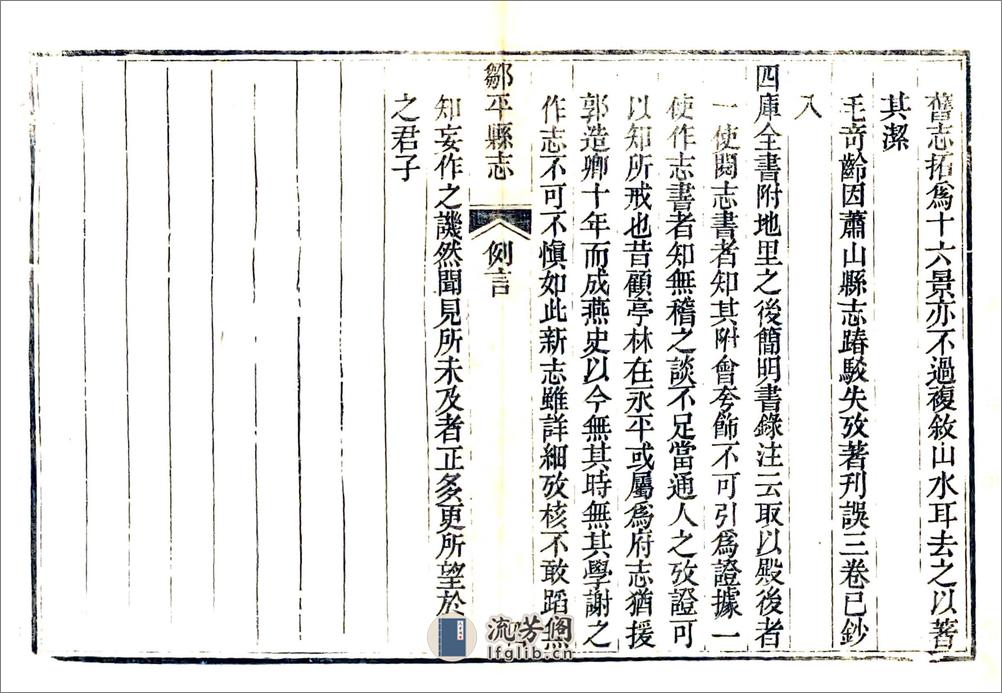 舊志拓爲十六景亦不過複敘山水耳去之以著
其潔
毛奇齡因蕭山縣志踳駁失攷著刊誤三卷已鈔
入
四庫全書附地里之後簡明書錄注云取以殿後者
一使閱志書者知其附會夸飾不可引爲證據一
使作志書者知無稽之談不足當通人之攷證可
以知所戒也昔顧亭林在永平或屬爲府志猶援
郭造卿十年而成燕史以今無其時無其學謝之
作志不可不愼如此新志雖詳細攷核不敢蹈無
鄒平縣志
例言
知妄作之譏然聞見所未及者正多更所望於
之君子
流芳阁
lfglib.cn